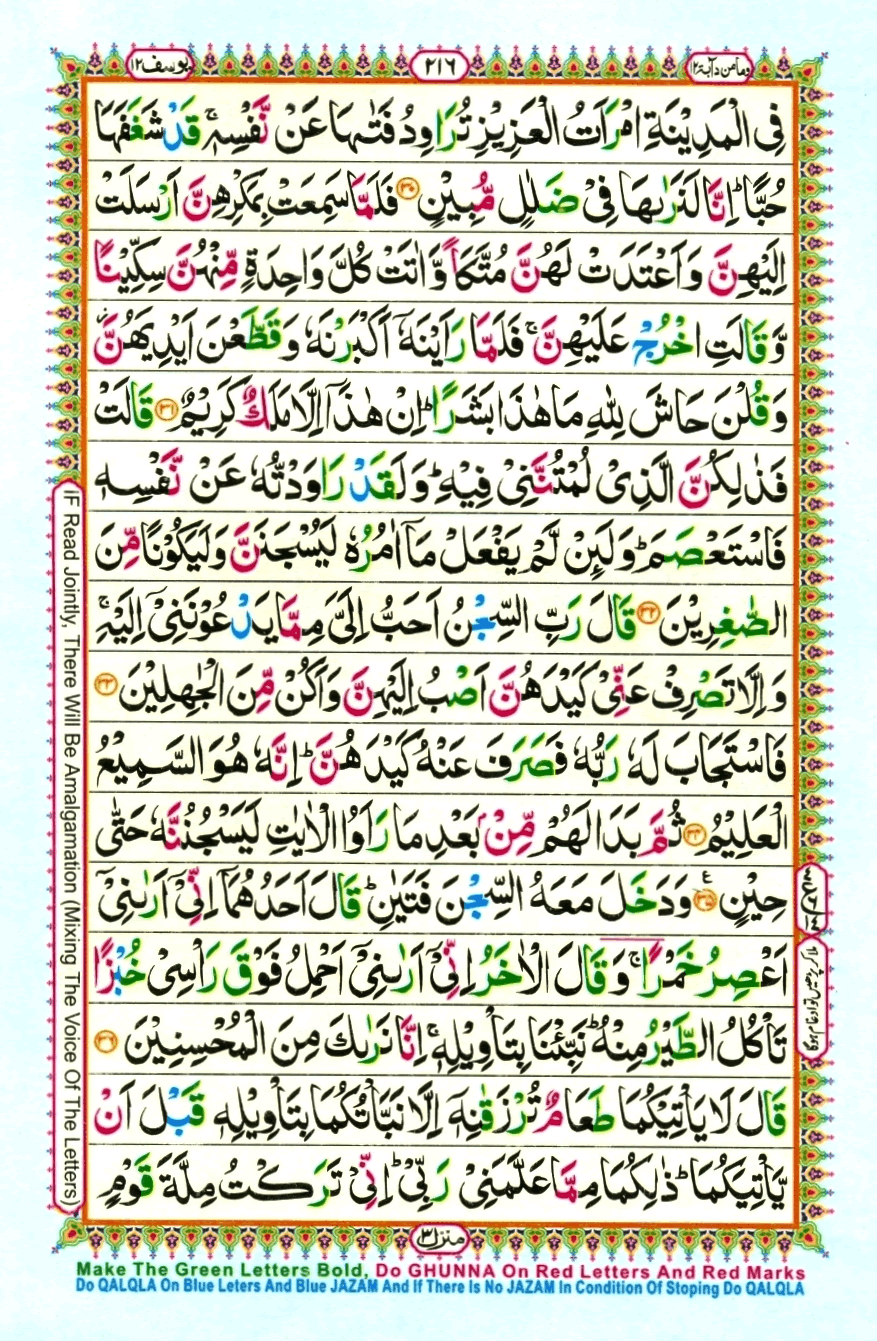 وما من دآبة ١٢
٢١٦
يوسف ١٢
فِی الْمَدِیْنَةِ امْرَاَتُ الْعَزِیْزِ تُرَاوِدُ فَتٰىهَا عَنْ نَّفْسِهٖ ۚ قَدْ شَغَفَهَا
حُبًّا ؕ اِنَّا لَنَرٰىهَا فِیْ ضَلٰلٍ مُّبِیْنٍ ۝۳۰ فَلَمَّا سَمِعَتْ بِمَكْرِهِنَّ اَرْسَلَتْ
اِلَیْهِنَّ وَاَعْتَدَتْ لَهُنَّ مُتَّكَاً وَّاٰتَتْ كُلَّ وَاحِدَةٍ مِّنْهُنَّ سِكِّیْنًا
وَّقَالَتِ اخْرُجْ عَلَیْهِنَّ ۚ فَلَمَّا رَاَیْنَهٗۤ اَكْبَرْنَهٗ وَقَطَّعْنَ اَیْدِیَهُنَّ ؗ
وَقُلْنَ حَاشَ لِلّٰهِ مَا هٰذَا بَشَرًا ؕ اِنْ هٰذَاۤ اِلَّا مَلَكٌ كَرِیْمٌ ۝۳۱ قَالَتْ
فَذٰلِكُنَّ الَّذِیْ لُمْتُنَّنِیْ فِیْهِ ؕ وَلَقَدْ رَاوَدْتُّهٗ عَنْ نَّفْسِهٖ
فَاسْتَعْصَمَ ؕ وَلَىِٕنْ لَّمْ یَفْعَلْ مَاۤ اٰمُرُهٗ لَیُسْجَنَنَّ وَلَیَكُوْنًا مِّنَ
الصّٰغِرِیْنَ ۝۳۲ قَالَ رَبِّ السِّجْنُ اَحَبُّ اِلَیَّ مِمَّا یَدْعُوْنَنِیْۤ اِلَیْهِ ۚ
وَاِلَّا تَصْرِفْ عَنِّیْ كَیْدَهُنَّ اَصْبُ اِلَیْهِنَّ وَاَكُنْ مِّنَ الْجٰهِلِیْنَ ۝۳۳
فَاسْتَجَابَ لَهٗ رَبُّهٗ فَصَرَفَ عَنْهُ كَیْدَهُنَّ ؕ اِنَّهٗ هُوَ السَّمِیْعُ
الْعَلِیْمُ ۝۳۴ ثُمَّ بَدَا لَهُمْ مِّنْۢ بَعْدِ مَا رَاَوُا الْاٰیٰتِ لَیَسْجُنُنَّهٗ حَتّٰی
حِیْنٍ ۝۳۵ ع وَدَخَلَ مَعَهُ السِّجْنَ فَتَیٰنِ ؕ قَالَ اَحَدُهُمَاۤ اِنِّیْۤ اَرٰىنِیْۤ
اَعْصِرُ خَمْرًا ۚ وَقَالَ الْاٰخَرُ اِنِّیْۤ اَرٰىنِیْۤ اَحْمِلُ فَوْقَ رَاْسِیْ خُبْزًا
تَاْكُلُ الطَّیْرُ مِنْهُ ؕ نَبِّئْنَا بِتَاْوِیْلِهٖ ۚ اِنَّا نَرٰىكَ مِنَ الْمُحْسِنِیْنَ ۝۳۶
قَالَ لَا یَاْتِیْكُمَا طَعَامٌ تُرْزَقٰنِهٖۤ اِلَّا نَبَّاْتُكُمَا بِتَاْوِیْلِهٖ قَبْلَ اَنْ
یَّاْتِیَكُمَا ؕ ذٰلِكُمَا مِمَّا عَلَّمَنِیْ رَبِّیْ ؕ اِنِّیْ تَرَكْتُ مِلَّةَ قَوْمٍ
ملا کر پڑھیں تو ادغام ہوگا
iF Read Jointly, There Will Be Amalgamation (Mixing The Voice Of The Letters)
منزل ٣
Make The Green Letters Bold, Do GHUNNA On Red Letters And Red Marks
Do QALQLA On Blue Leters And Blue JAZAM And If There Is No JAZAM In Condition Of Stoping Do QALQLA